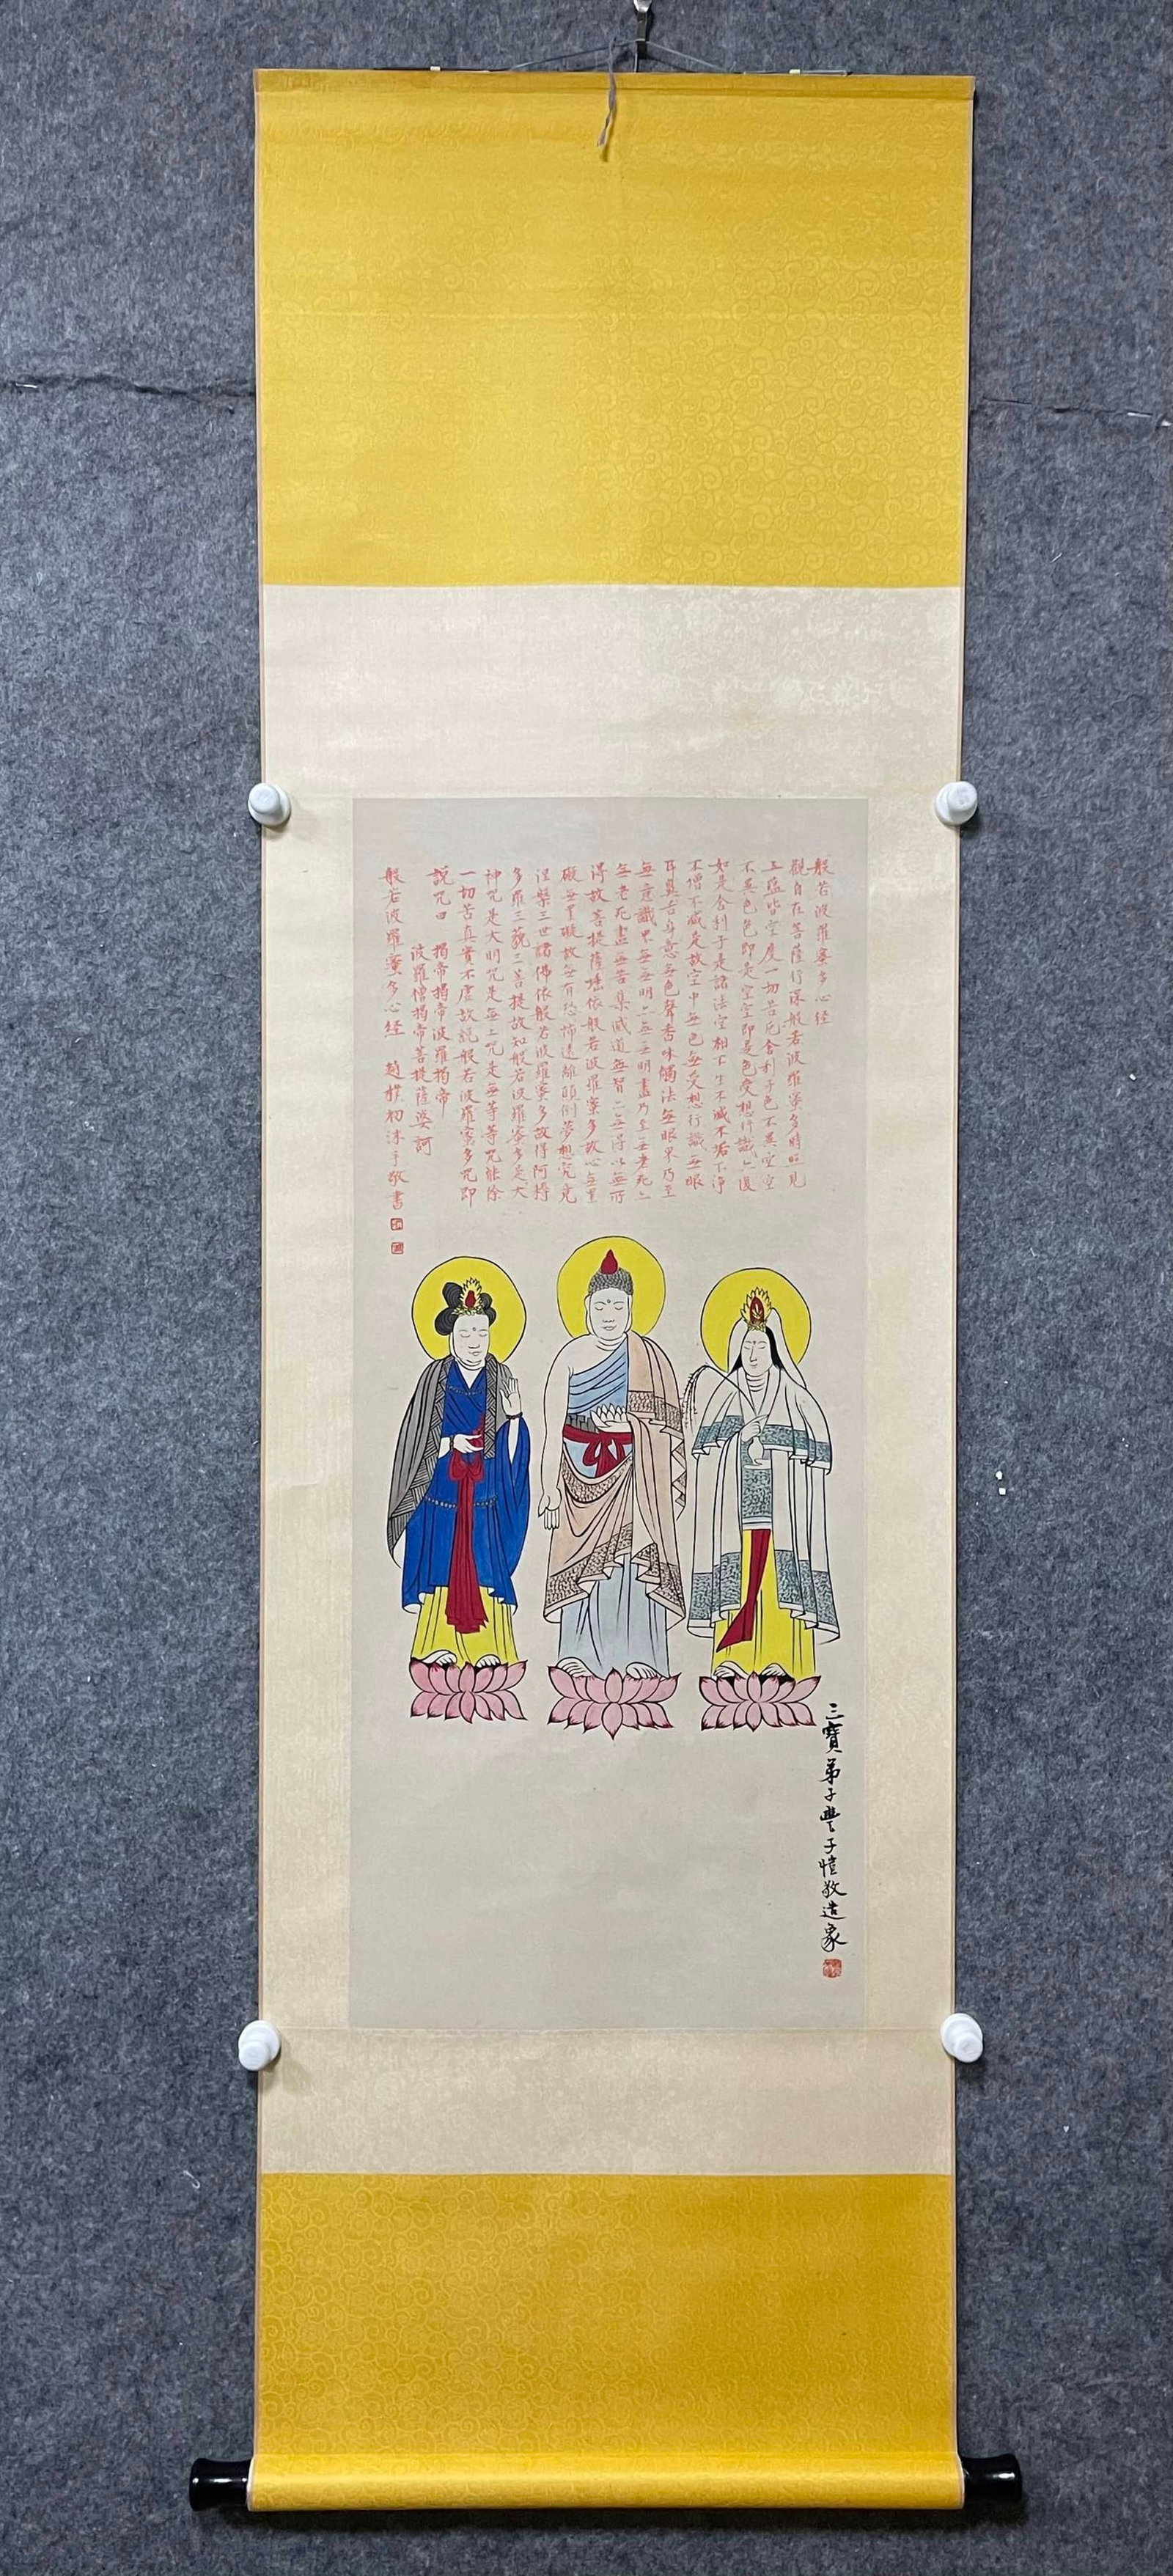 般若波羅蜜多心経
觀自在菩薩行深般若波羅蜜多時照見
五蘊皆空度一切苦厄舍利子色不異空空
不異色色即是空空即是色受想行識亦復
如是舍利子是諸法空相不生不滅不垢不淨
不增不減是故空中無色無受想行識無眼
耳鼻舌身意無色聲香味觸法無眼界乃至
無意識界無無明亦無無明盡乃至無老死亦
無老死盡無苦集滅道無智亦無得以無所
得故菩提薩埵依般若波羅蜜多故心無罣
礙無罣礙故無有恐怖遠離顛倒夢想究竟
涅槃三世諸佛依般若波羅蜜多故得阿耨
多羅三藐三菩提故知般若波羅蜜多是大
神咒是大明咒是無上咒是無等等咒能除
一切苦真實不虛故説般若波羅蜜多咒即
説咒曰 揭帝揭帝波羅揭帝
波羅僧揭帝菩提薩婆訶
般若波羅蜜多心経 趙樸初沐手敬書
三寶弟子豐子愷敬造象